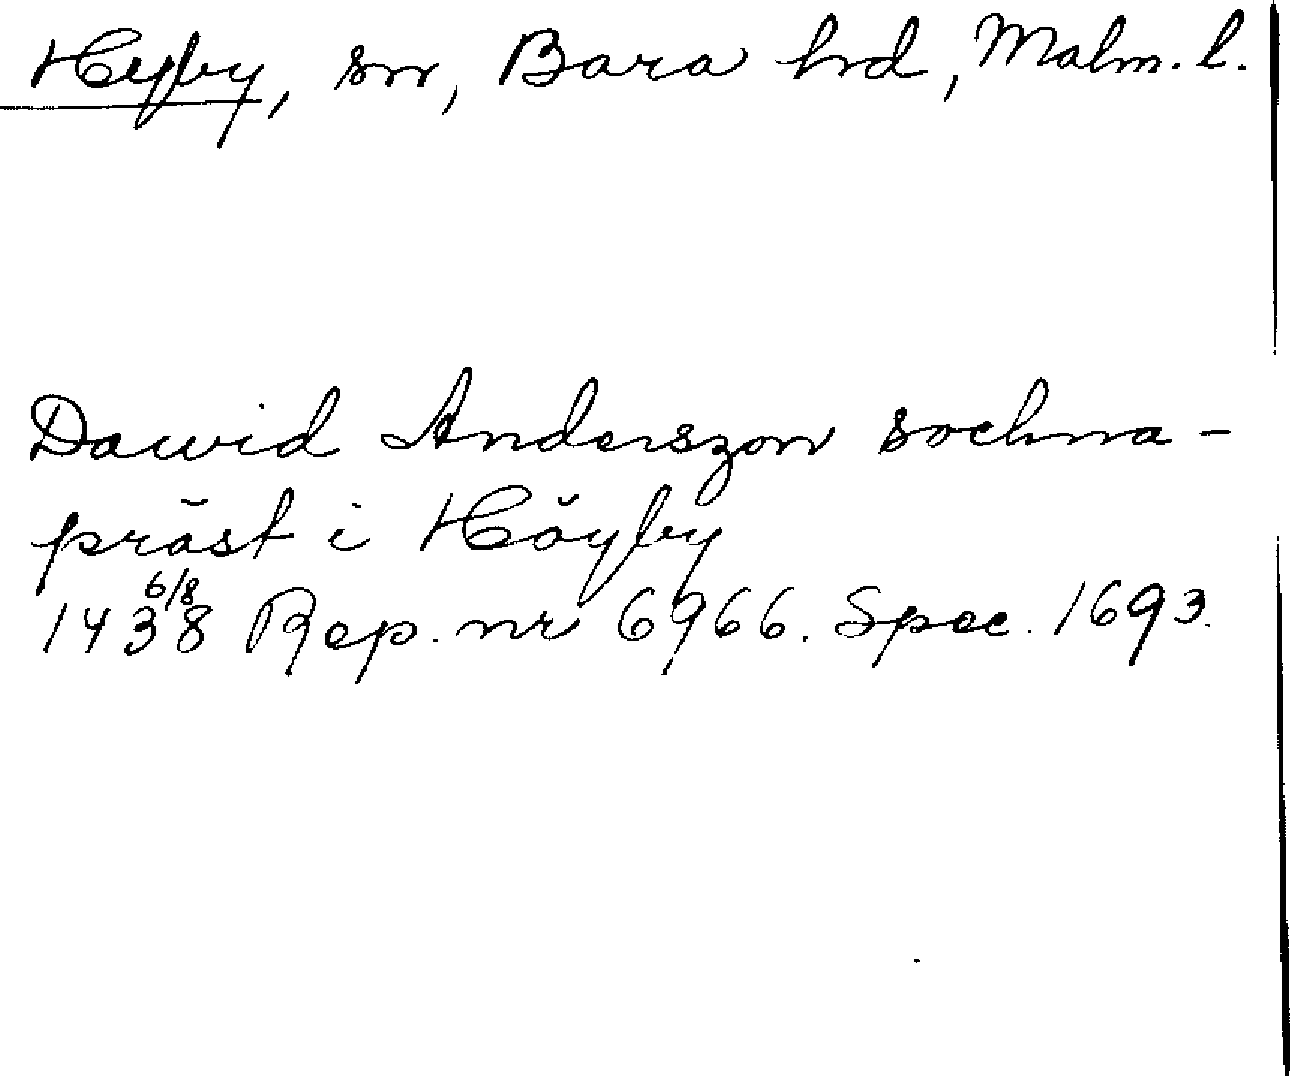 Hyby, sn, Bara hrd, Malm. l.
Dawid Anderszon sochna-
präst i Höyby
6/8
1438 Rep. nr 6966. Spec. 1693.